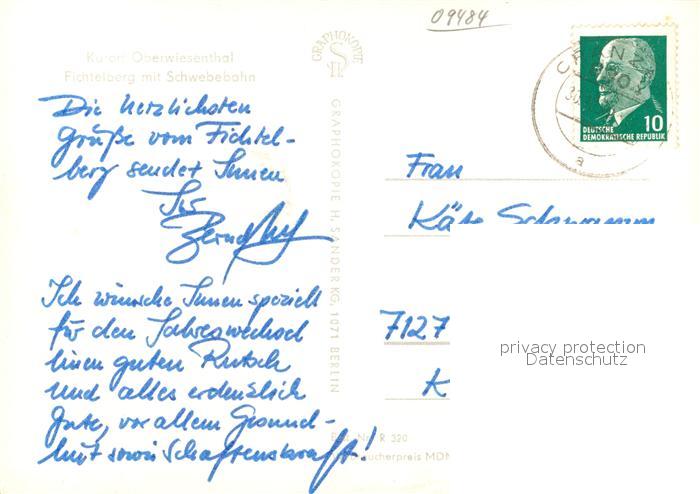 09484
Kurort Oberwiesenthal
Fichtelberg mit Schwebebahn
GRAPHOKOPIE
Die herzlichsten
Grüße vom Fichtel-
berg sendet Ihnen
Ihr
Ich wünsche Ihnen speziell
für den Jahreswechsel
einen guten Rutsch
und alles erdenklich
Gute, vor allem Gesund-
heit sowie Schaffenskraft!
GRAPHOKOPIE H. SANDER KG, 1071 BERLIN
R 320
ucherpreis MDN
10
DEUTSCHE
DEMOKRATISCHE REPUBLIK
a
Frau
Käte Schwamm
7127
K
privacy protection
Datenschutz